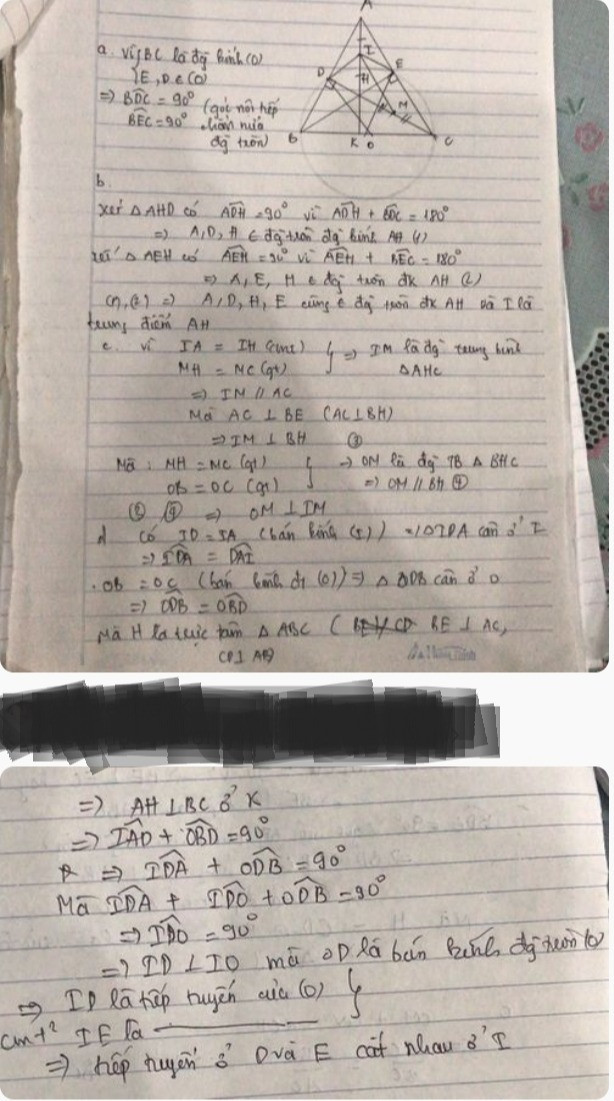 a. Vì BC là đg kính (O)
{E, D ∈ (O)
=> BDC = 90° (góc nội tiếp
BEC = 90° chắn nửa
đg tròn)
A
I
D
E
H
M
B
K
O
C
b.
xét △AHD có ADH = 90° vì ADH + BDC = 180°
=> A, D, H ∈ đg tròn đg kính AH (1)
xét △AEH có AEH = 90° vì AEH + BEC = 180°
=> A, E, H ∈ đg tròn đk AH (2)
(1), (2) => A, D, H, E cùng ∈ đg tròn đk AH và I là
trung điểm AH
c. vì IA = IH (cmt) } => IM là đg trung bình
MH = MC (gt) △AHC
=> IM // AC
Mà AC ⊥ BE (AC ⊥ BH)
=> IM ⊥ BH ③
Mà : MH = MC (gt) } => OM là đg TB △BHC
OB = OC (gt) => OM // BH ④
③ ④ => OM ⊥ IM
d Có ID = IA (bán kính (I)) => △IDA cân ở I
=> IDA = DAI
. OB = OC (bán kính (O)) => △ODB cân ở O
=> ODB = OBD
Mà H là trực tâm △ABC ( BE ⊥ AC,
CD ⊥ AB)
=> AH ⊥ BC ở K
=> IAD + OBD = 90°
=> IDA + ODB = 90°
Mà IDA + IDO + ODB = 90°
=> IDO = 90°
=> ID ⊥ IO mà OD là bán kính đg tròn (O)
=> ID là tiếp tuyến của (O) }
cmt² IE là
=> tiếp tuyến ở D và E cắt nhau ở I